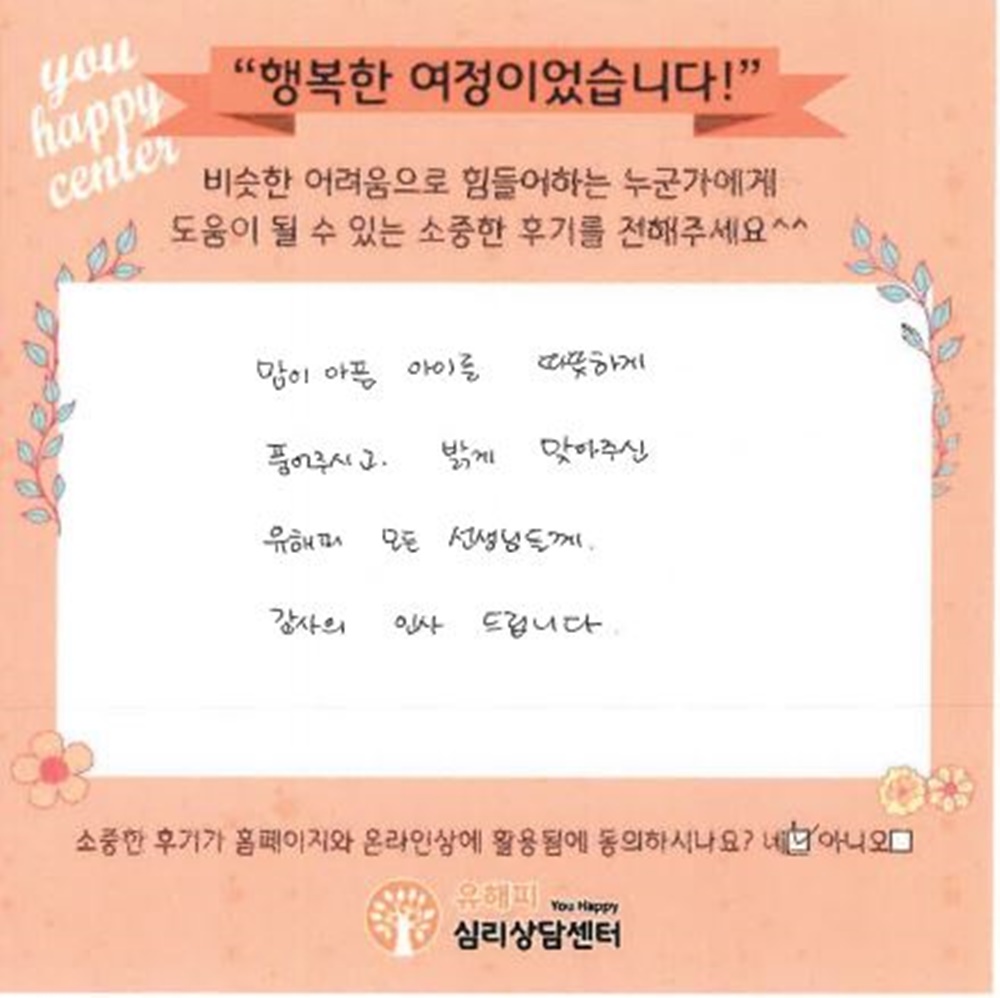 you
happy
center
“행복한 여정이었습니다!”
비슷한 어려움으로 힘들어하는 누군가에게
도움이 될 수 있는 소중한 후기를 전해주세요^^
맘이 아픔 아이를 따뜻하게
품어주시고. 밝게 맞아주신
유해피 모든 선생님들께.
감사의 인사 드립니다.
소중한 후기가 홈페이지와 온라인상에 활용됨에 동의하시나요? 네 아니오
유해피 You Happy
심리상담센터